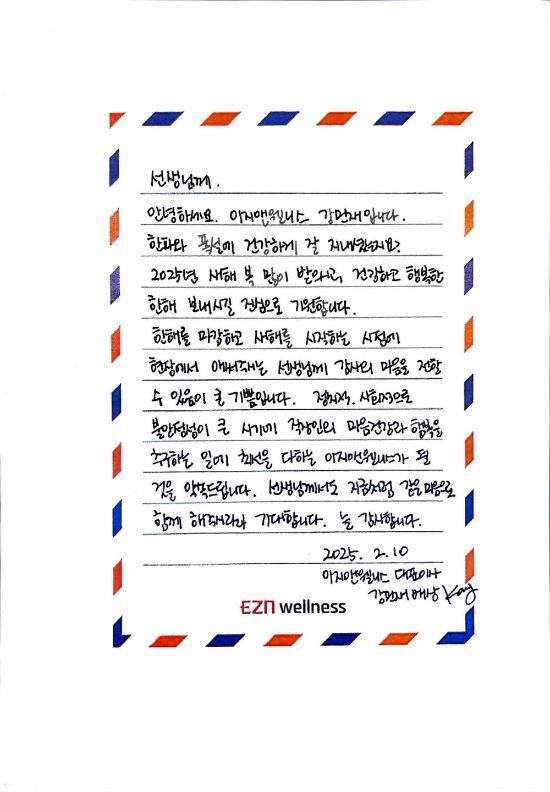 선생님께.
안녕하세요. 이지앤웰니스 강민재입니다.
한파와 폭설에 건강하게 잘 지내셨는지요?
2025년 새해 복 많이 받으시고, 건강하고 행복한
한해 보내시길 진심으로 기원합니다.
한해를 마감하고 새해를 시작하는 시점에
현장에서 애써주시는 선생님께 감사의 마음을 전할
수 있음이 큰 기쁨입니다. 정치적, 사회적으로
불안정성이 큰 시기에 직장인의 마음건강과 행복을
추구하는 일에 최선을 다하는 이지앤웰니스가 될
것을 약속드립니다. 선생님께서도 지금처럼 같은 마음으로
함께 해주시리라 기대합니다. 늘 감사합니다.
2025. 2. 10
이지앤웰니스 대표이사
강민재 배상 Kay
EZN wellness